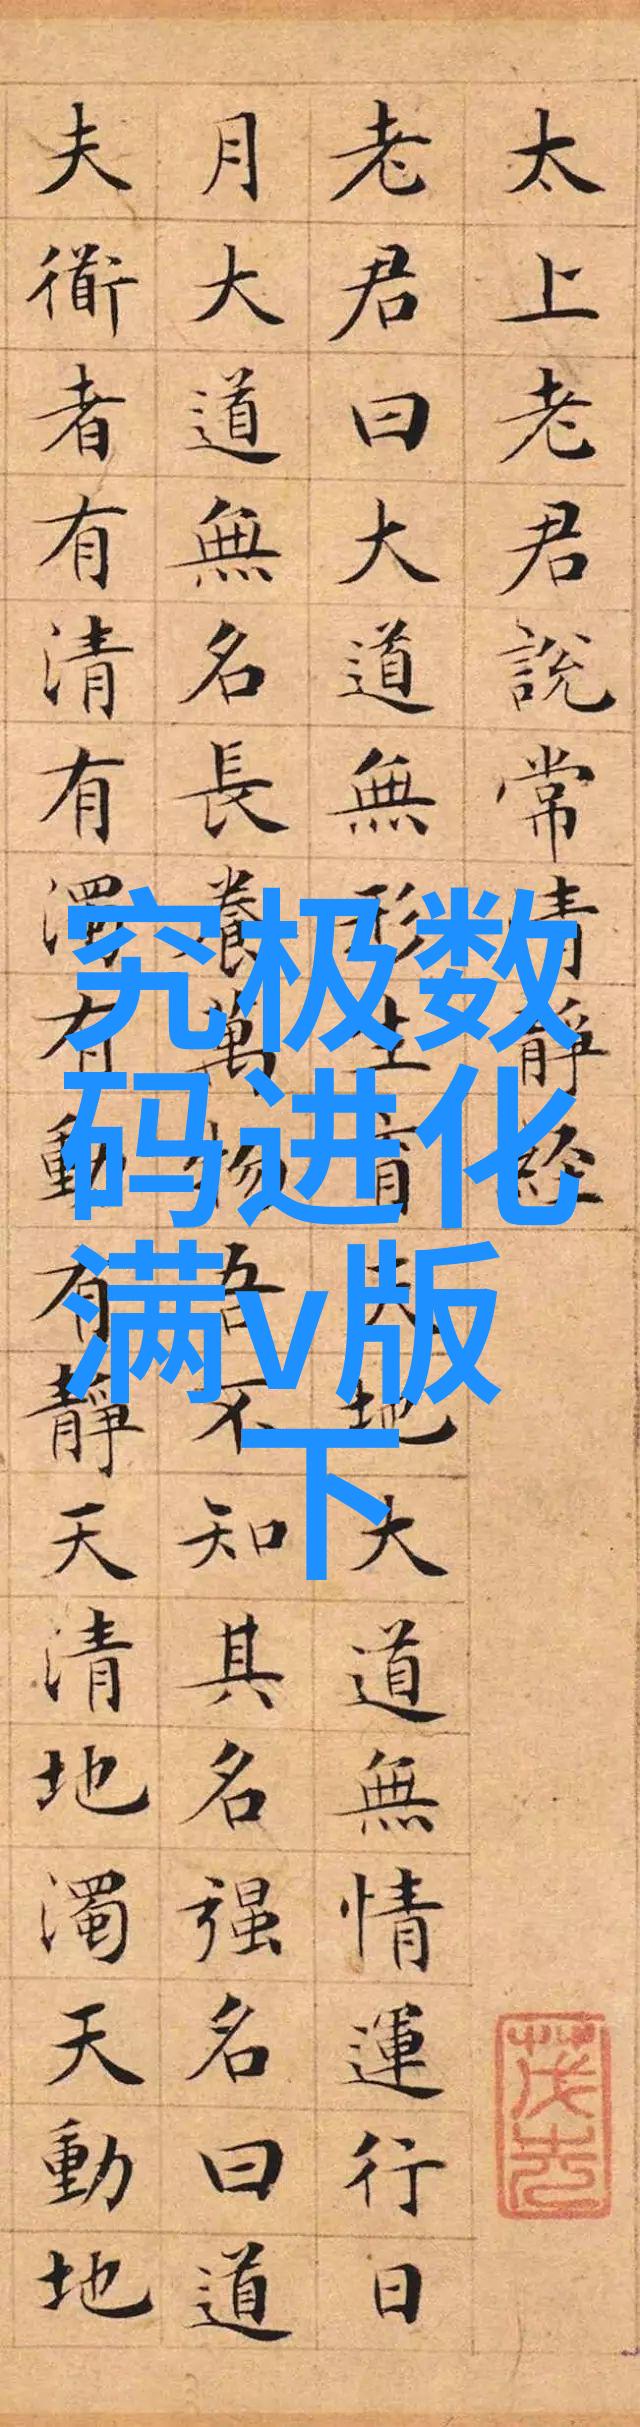 太上老君說常清靜經
老君曰大道無形生育天地大道無情運行日
月大道無名長養萬物吾不知其名强名曰道
夫衜者有清有濁有動有靜天清地濁天動地
究极数
码进化
满v版
下